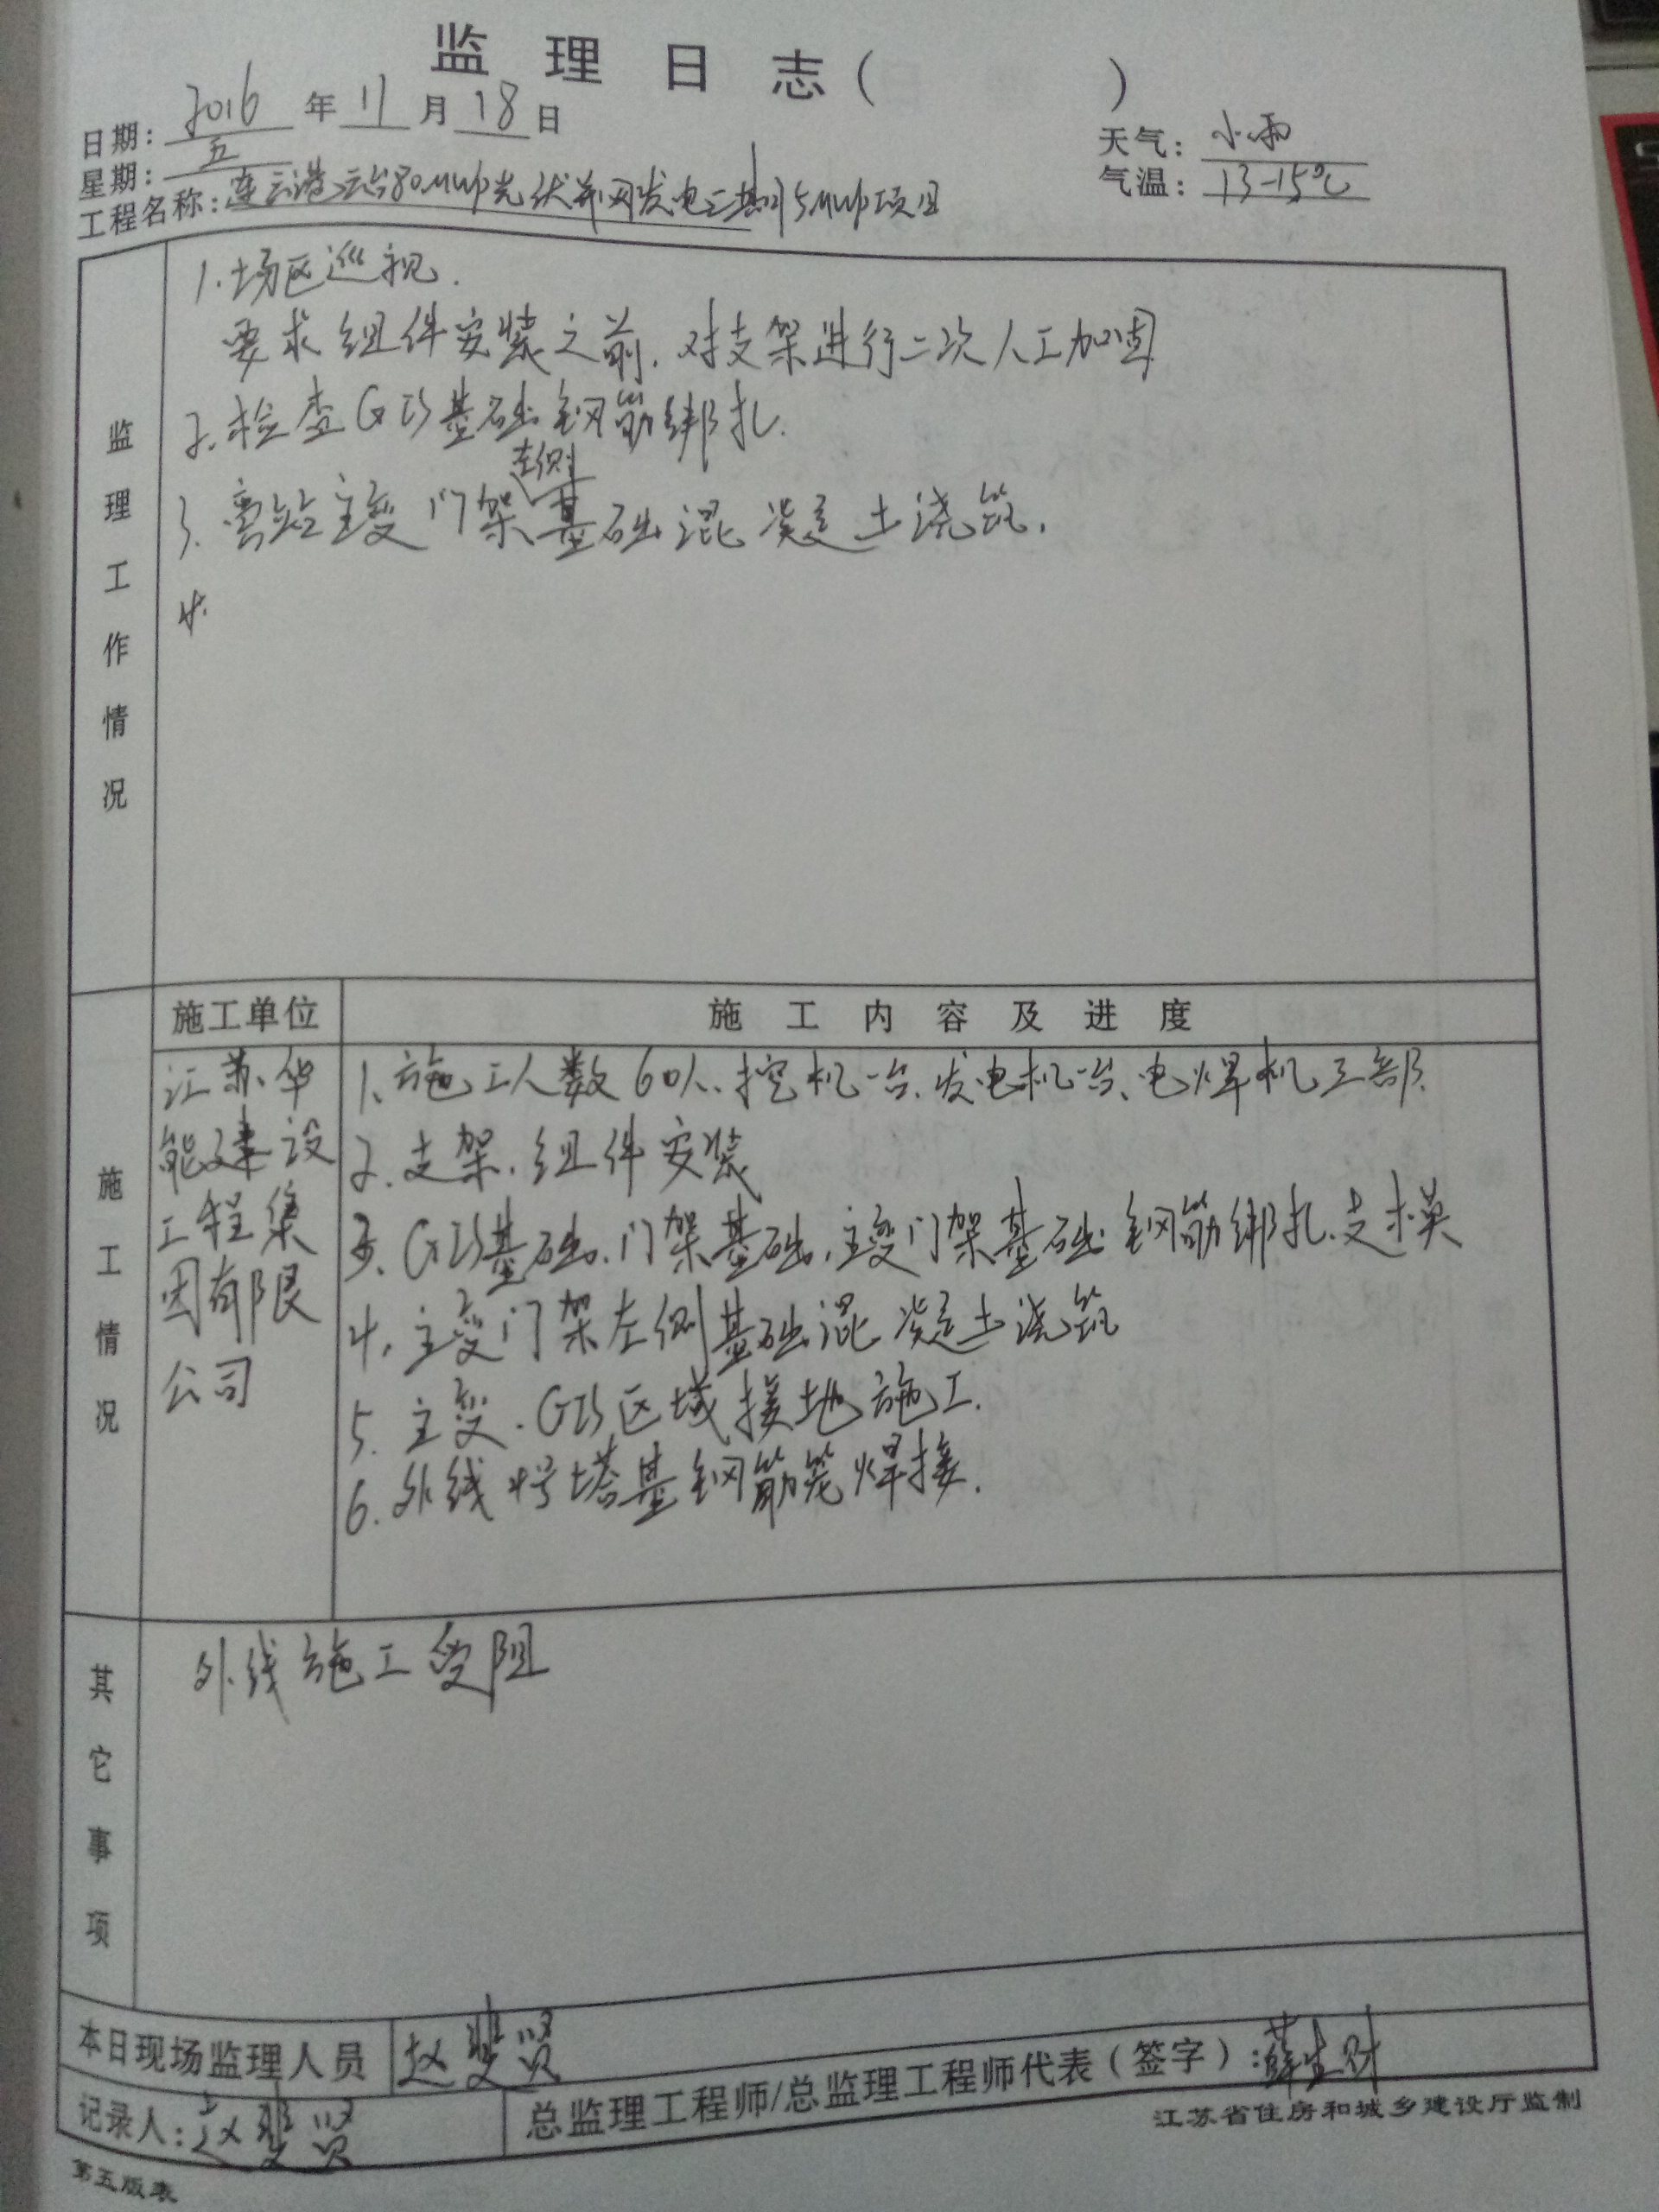 监理日志(　　)
日期：2016年11月18日
星期：五
天气：小雨
气温：13-15℃
工程名称：连云港云台80MWp光伏并网发电三期25MWp项目
监理工作情况
1.场区巡视.
要求组件安装之前.对支架进行二次人工加固
2.检查GIS基础钢筋绑扎.
左侧
3.旁站主变门架基础混凝土浇筑.
4.
施工情况
施工单位
施工内容及进度
江苏华
能建设
工程集
团有限
公司
1.施工人数60人.挖机一台.发电机一台、电焊机三部.
2.支架.组件安装
3.GIS基础.门架基础.主变门架基础钢筋绑扎.支模
4.主变门架左侧基础混凝土浇筑
5.主变.GIS区域接地施工.
6.外线4号塔基钢筋笼焊接.
其它事项
外线施工受阻
本日现场监理人员 赵 贤
记录人：赵 贤
总监理工程师/总监理工程师代表(签字)：薛 财
江苏省住房和城乡建设厅监制
第五版表